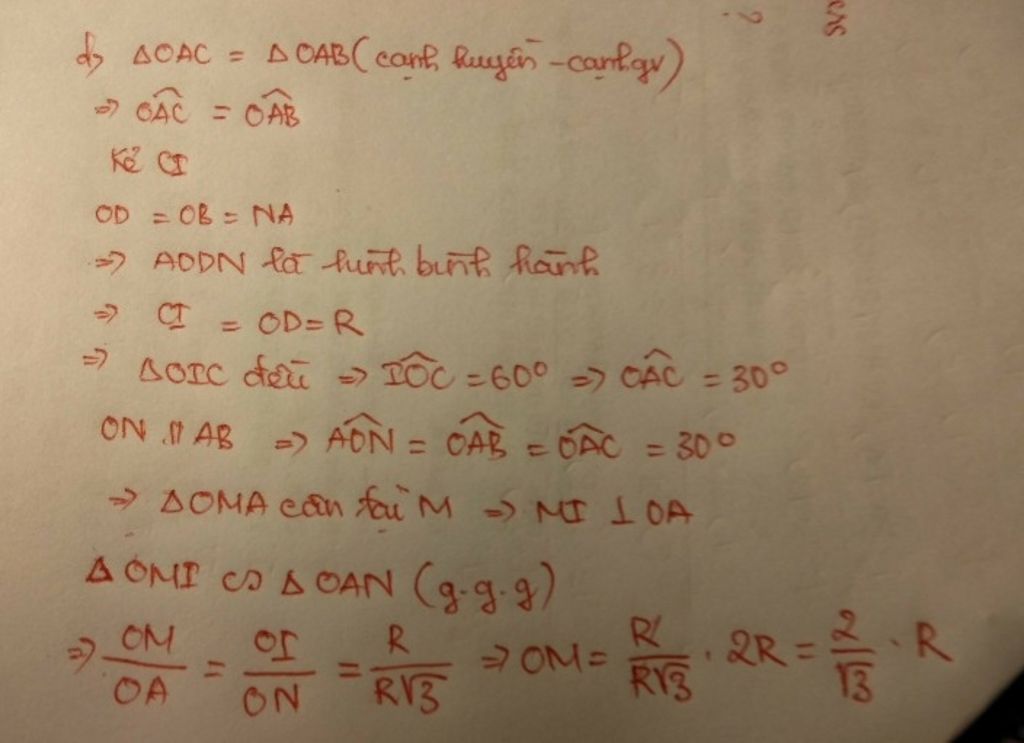 d) ΔOAC = ΔOAB (cạnh huyền - cạnh gv)
⇒ \widehat{OAC} = \widehat{OAB}
Kẻ CI
OD = OB = NA
⇒ AODN là hình bình hành
⇒ CI = OD = R
⇒ ΔOIC đều ⇒ \widehat{IOC} = 60° ⇒ \widehat{OAC} = 30°
ON // AB ⇒ \widehat{AON} = \widehat{OAB} = \widehat{OAC} = 30°
⇒ ΔOMA cân tại M ⇒ MI ⊥ OA
ΔOMI ∽ ΔOAN (g.g.g)
⇒ \frac{OM}{OA} = \frac{OI}{ON} = \frac{R}{R√3} ⇒ OM = \frac{R}{R√3} . 2R = \frac{2}{√3} . R